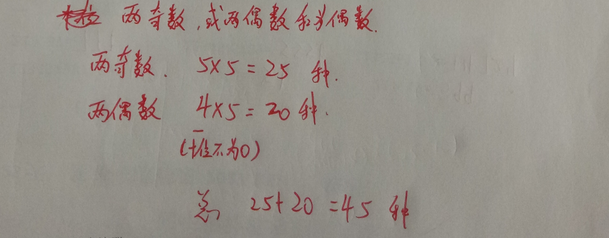 两奇数,或两偶数和为偶数.
两奇数. 5×5=25 种.
两偶数 4×5=20 种.
(十位不为0)
总 25+20=45 种